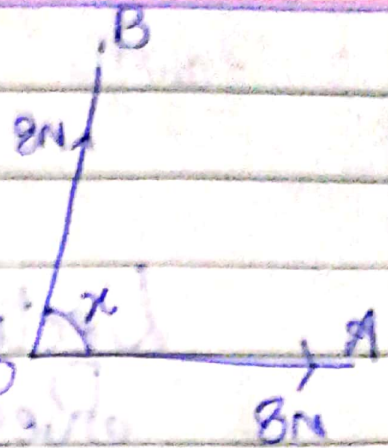 B
8N
x
A
8N